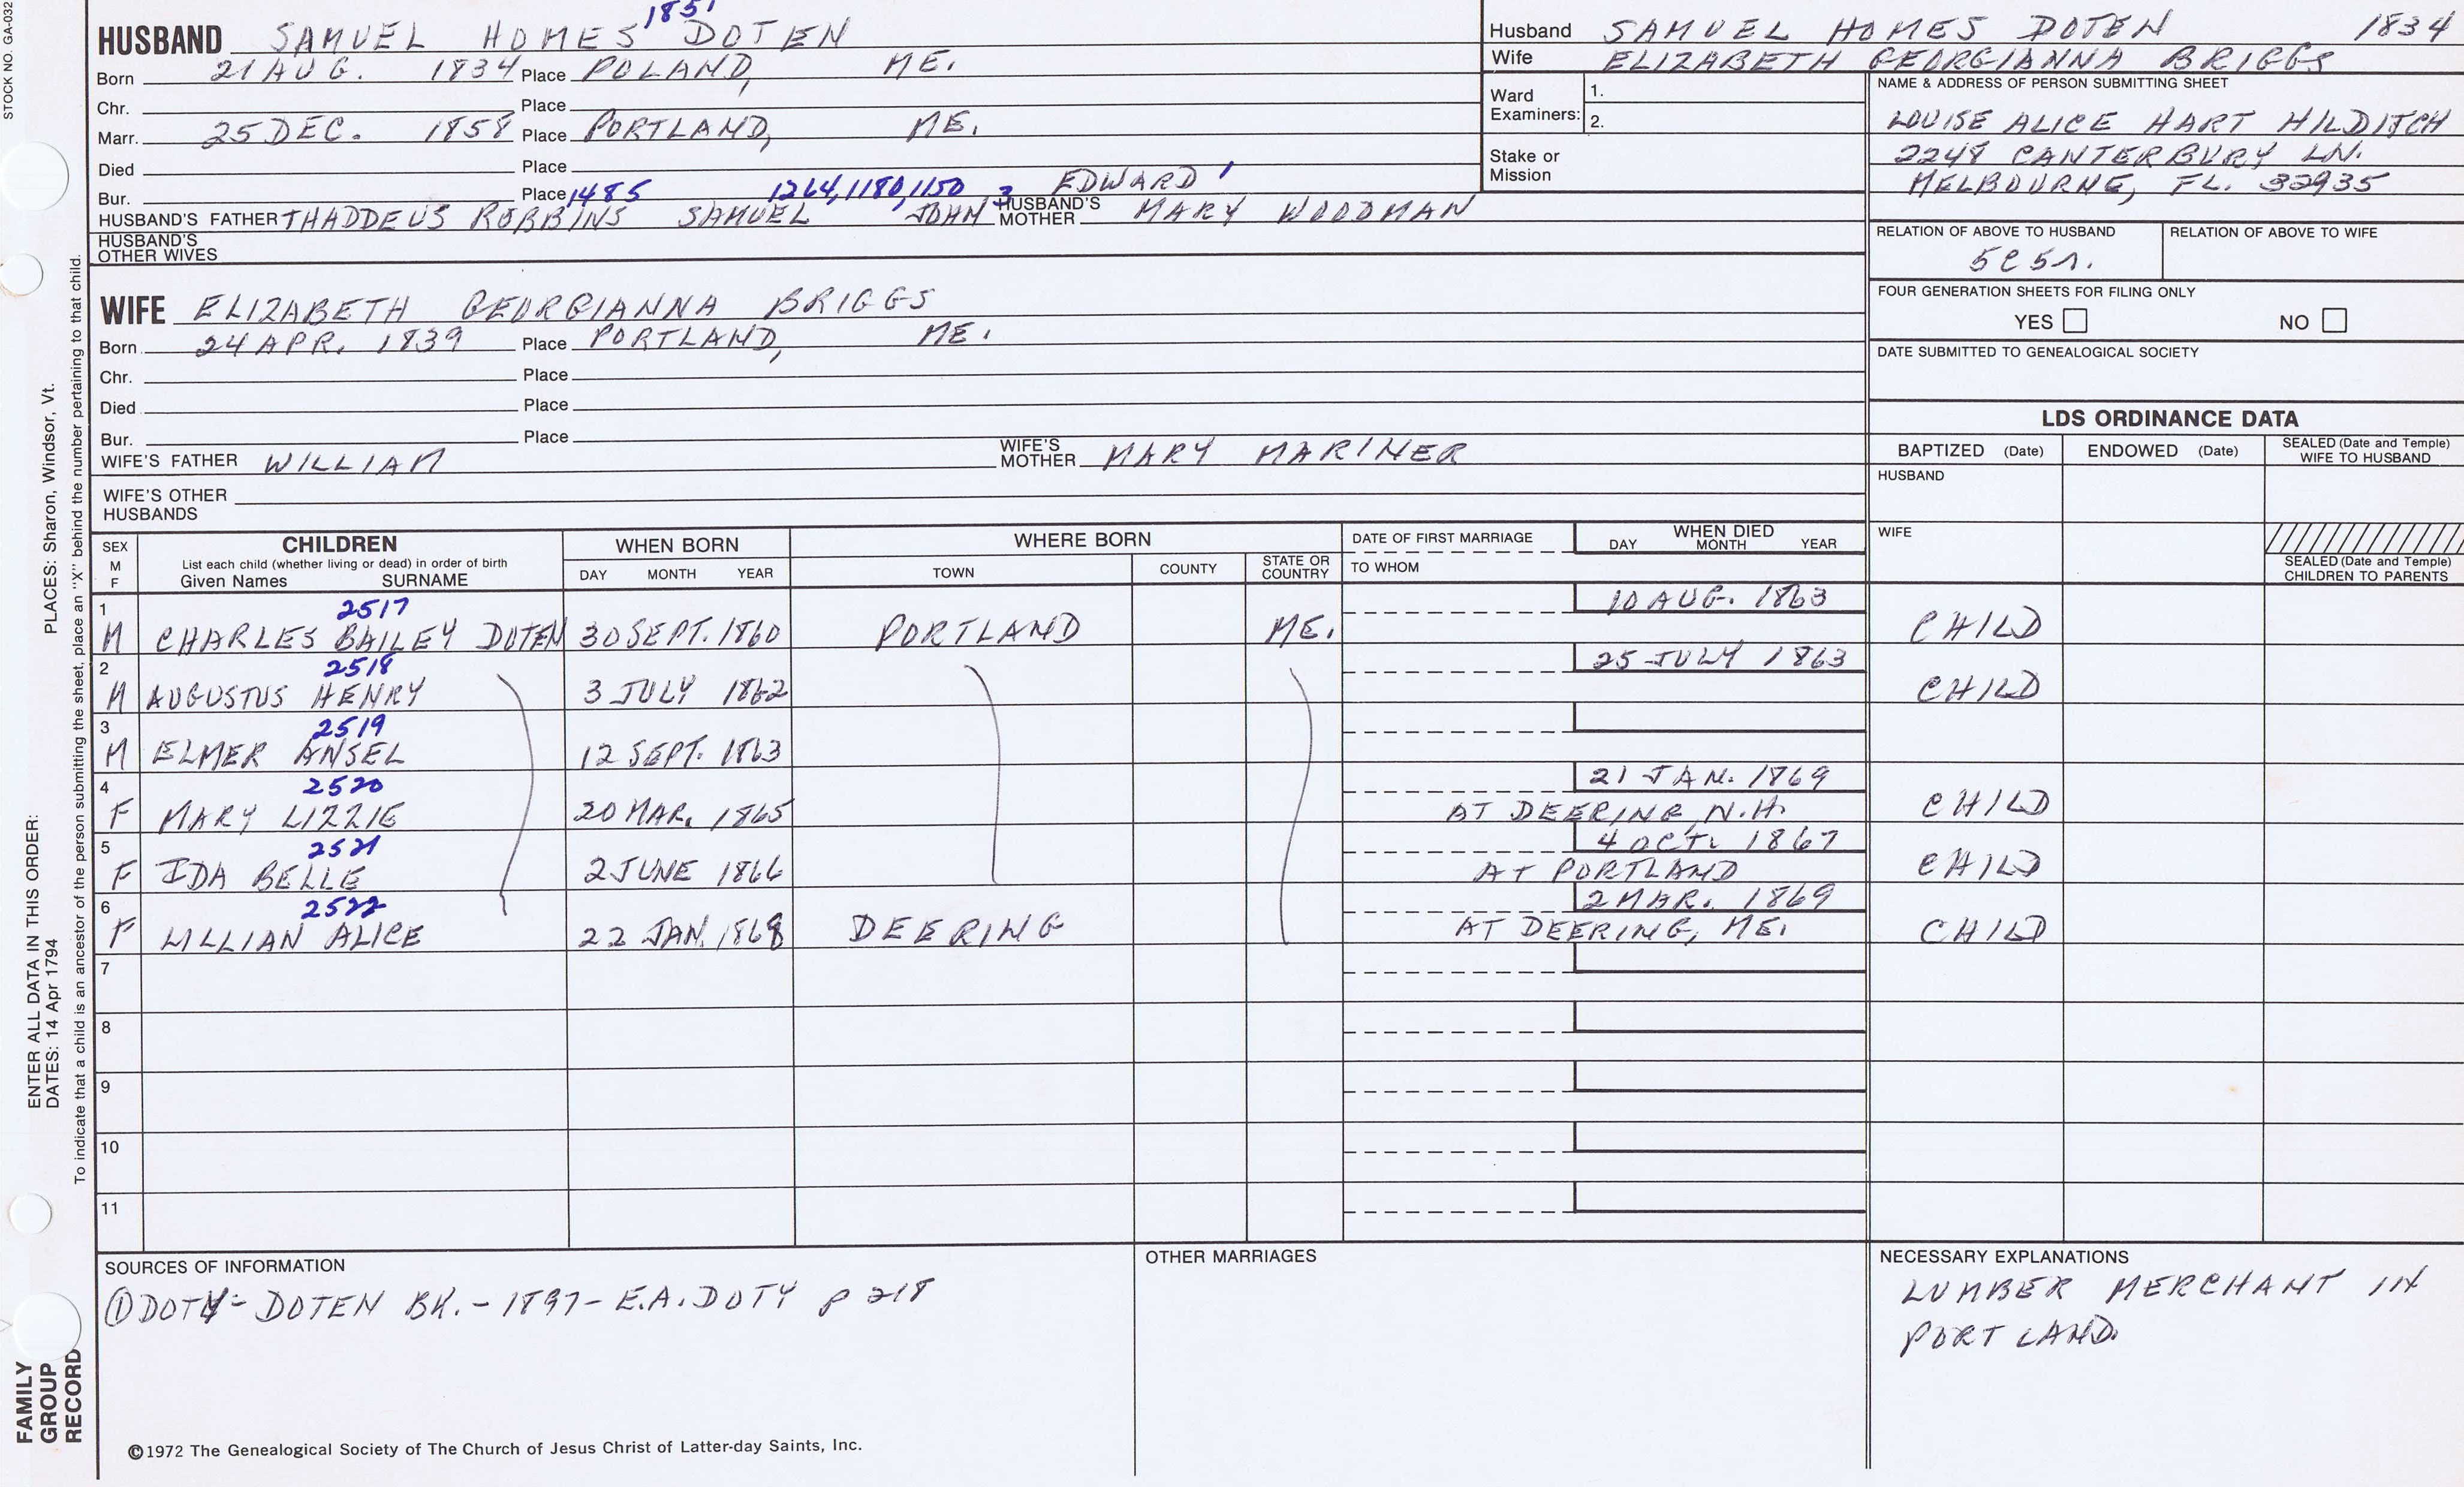 STOCK NO. GA-032
1851
HUSBAND SAMUEL HOMES DOTEN
Born 21 AUG. 1834 Place POLAND, ME.
Chr. Place
Marr. 25 DEC. 1858 Place PORTLAND, ME.
Died Place
Bur. Place 1485 1264, 1180, 1150 3 EDWARD 1
HUSBAND'S FATHER THADDEUS ROBBINS SAMUEL JOHN HUSBAND'S MOTHER MARY WOODMAN
HUSBAND'S OTHER WIVES
WIFE ELIZABETH GEORGIANNA BRIGGS
Born 24 APR. 1839 Place PORTLAND, ME.
Chr. Place
Died Place
Bur. Place
WIFE'S FATHER WILLIAM WIFE'S MOTHER MARY MARINER
WIFE'S OTHER HUSBANDS
Husband SAMUEL HOMES DOTEN 1834
Wife ELIZABETH GEORGIANNA BRIGGS
Ward Examiners: 1.
2.
Stake or Mission
NAME & ADDRESS OF PERSON SUBMITTING SHEET
LOUISE ALICE HART HILDITCH
2248 CANTERBURY LN.
MELBOURNE, FL. 32935
RELATION OF ABOVE TO HUSBAND RELATION OF ABOVE TO WIFE
5C5r.
FOUR GENERATION SHEETS FOR FILING ONLY
YES NO
DATE SUBMITTED TO GENEALOGICAL SOCIETY
LDS ORDINANCE DATA
BAPTIZED (Date) ENDOWED (Date) SEALED (Date and Temple) WIFE TO HUSBAND
HUSBAND
WIFE
SEALED (Date and Temple) CHILDREN TO PARENTS
SEX M F CHILDREN List each child (whether living or dead) in order of birth Given Names SURNAME WHEN BORN DAY MONTH YEAR WHERE BORN TOWN COUNTY STATE OR COUNTRY DATE OF FIRST MARRIAGE TO WHOM WHEN DIED DAY MONTH YEAR
1 2517 10 AUG. 1863
M CHARLES BAILEY DOTEN 30 SEPT. 1860 PORTLAND ME. CHILD
2 2518 25 JULY 1863
M AUGUSTUS HENRY 3 JULY 1862 CHILD
3 2519
M ELMER ANSEL 12 SEPT. 1863
4 2520 21 JAN. 1869
F MARY LIZZIE 20 MAR. 1865 AT DEERING, N.H. CHILD
5 2521 4 OCT. 1867
F IDA BELLE 2 JUNE 1866 AT PORTLAND CHILD
6 2522 2 MAR. 1869
F LILLIAN ALICE 22 JAN. 1868 DEERING AT DEERING, ME. CHILD
7
8
9
10
11
SOURCES OF INFORMATION
① DOTY-DOTEN BK. - 1897 - E.A. DOTY p 218
OTHER MARRIAGES
NECESSARY EXPLANATIONS
LUMBER MERCHANT IN
PORTLAND.
©1972 The Genealogical Society of The Church of Jesus Christ of Latter-day Saints, Inc.
ENTER ALL DATA IN THIS ORDER:
DATES: 14 Apr 1794 PLACES: Sharon, Windsor, Vt.
To indicate that a child is an ancestor of the person submitting the sheet, place an "X" behind the number pertaining to that child.
FAMILY
GROUP
RECORD